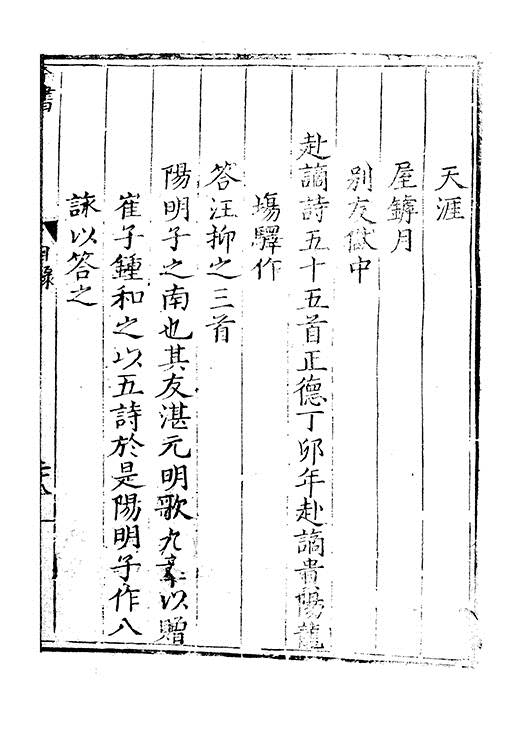 天涯
屋罅月
別友獄中
赴謫詩五十五首正德丁卯年赴謫貴陽龍
塲驛作
答汪抑之三首
陽明子之南也其友湛元明歌九章以贈
崔子鍾和之以五詩於是陽明子作八
詠以答之
全書
目錄